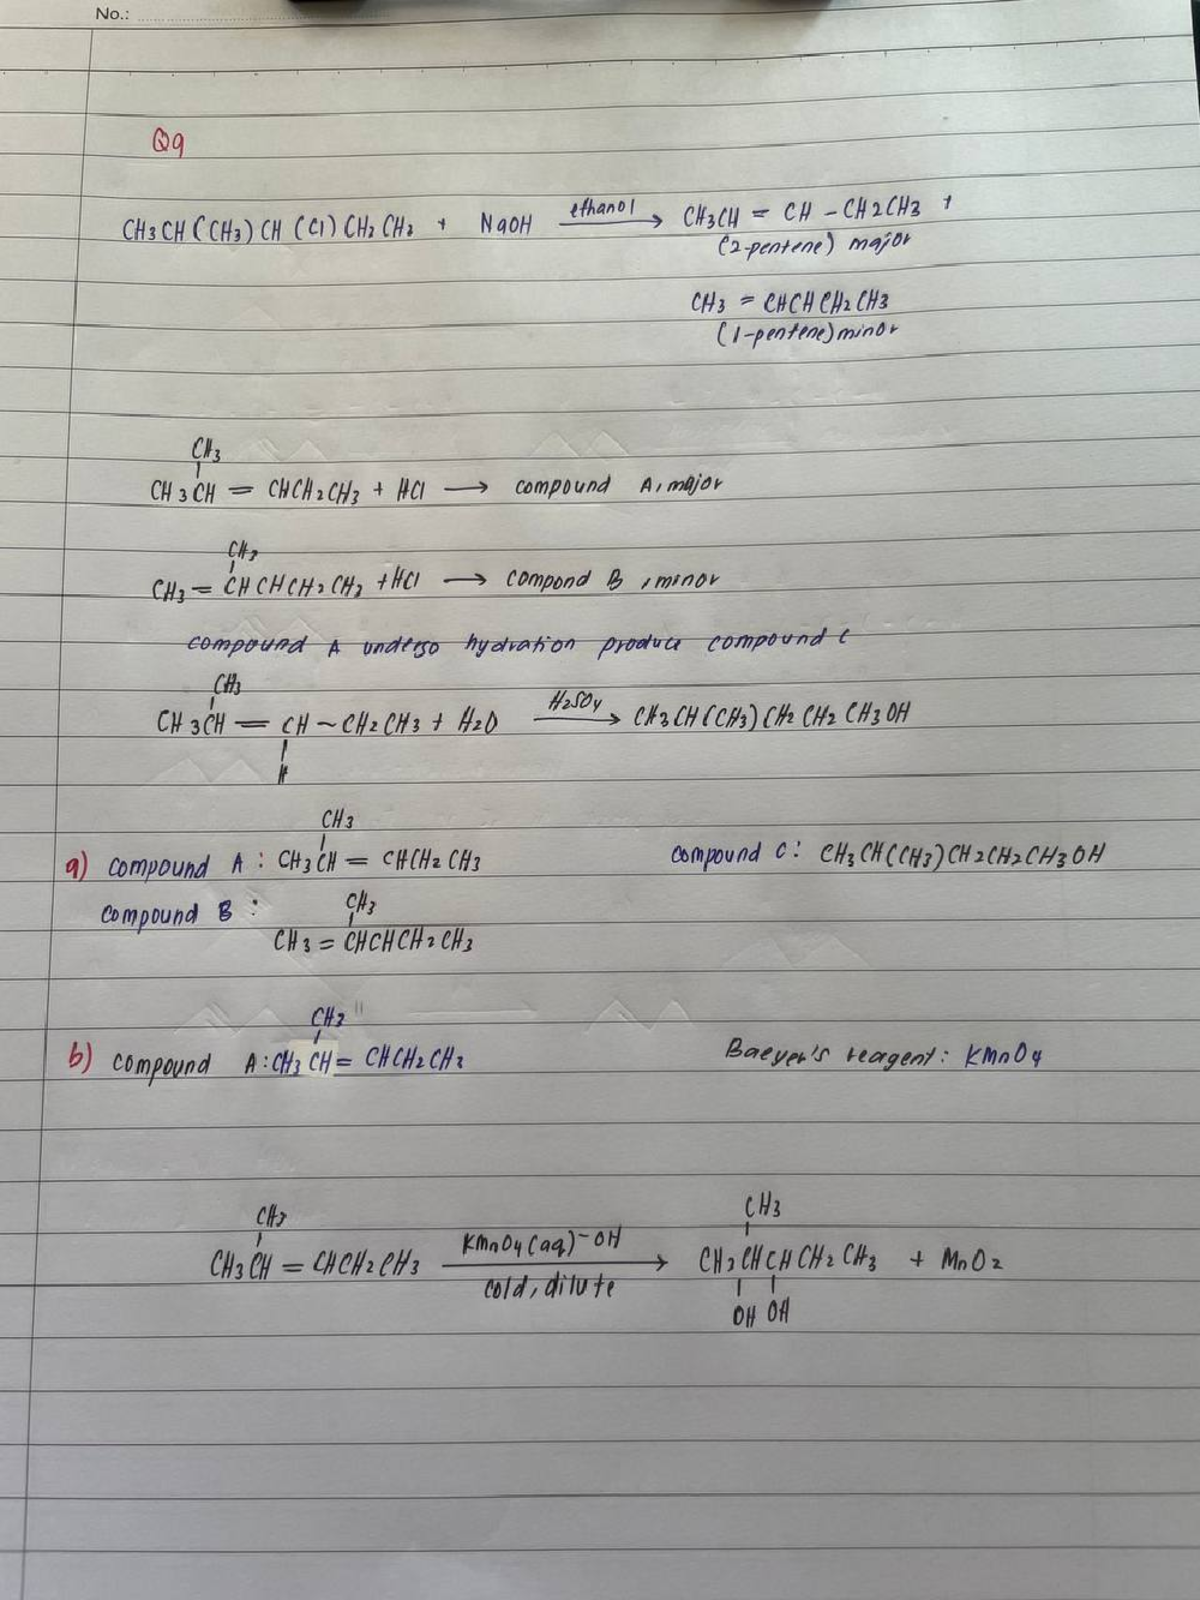 No.:
Q9
CH3CH(CH3)CH(Cl)CH2CH3 + NaOH ethanol → CH3CH = CH - CH2CH3 +
(2-pentene) major
CH3 = CHCHCH2CH3
(1-pentene) minor
CH3
CH3CH = CHCH2CH3 + HCl → compound A, major
CH3
CH3 = CHCHCH2CH3 + HCl → compond B, minor
compound A undergo hydration produce compound C
CH3
CH3CH = CH - CH2CH3 + H2O H2SO4 → CH3CH(CH3)CH2CH2CH3OH
H
CH3
a) compound A : CH3CH = CHCH2CH3 compound C: CH3CH(CH3)CH2CH2CH3OH
compound B : CH3
CH3 = CHCHCH2CH3
CH3
b) compound A : CH3CH = CHCH2CH3 Baeyer's reagent: KMnO4
CH3 CH3
CH3CH = CHCH2CH3 KMnO4(aq) -OH → CH3CHCHCH2CH3 + MnO2
cold, dilute
OH OH